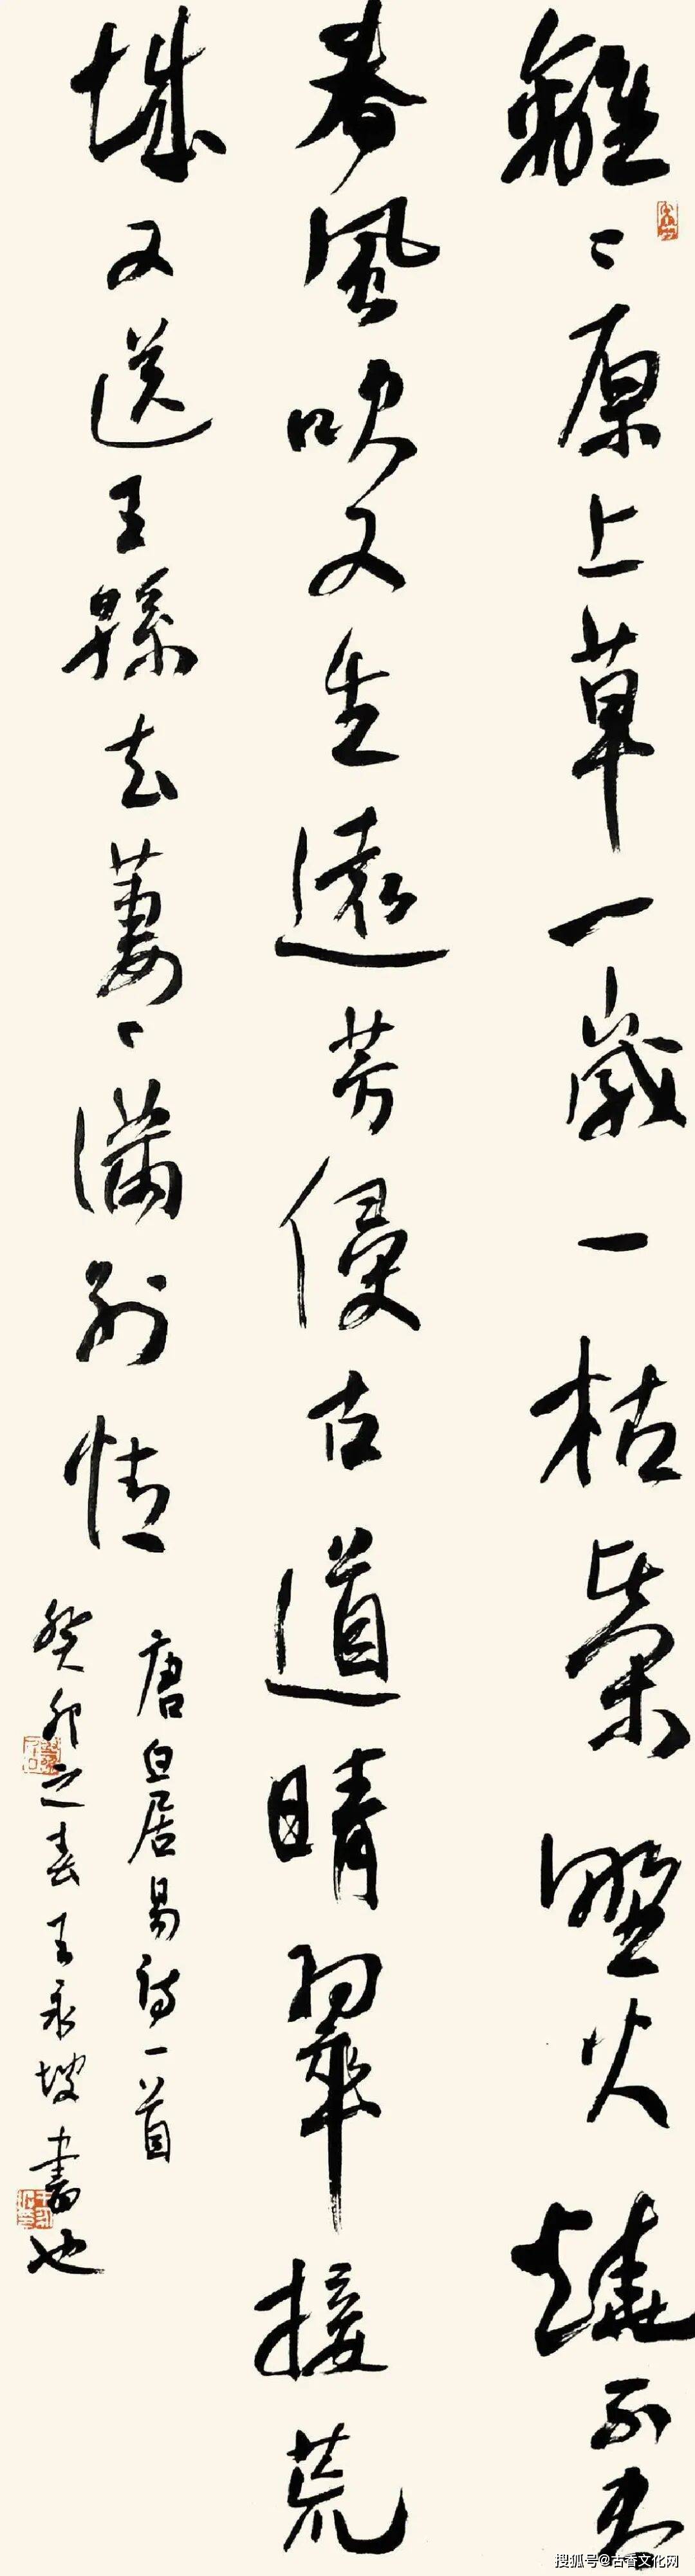 離〻原上草一歲一枯榮野火燒不盡
春風吹又生遠芳侵古道晴翠接荒
城又送王孫去萋〻滿別情
唐白居易詩一首
癸卯之春王永坡書也
搜狐号@古香文化网